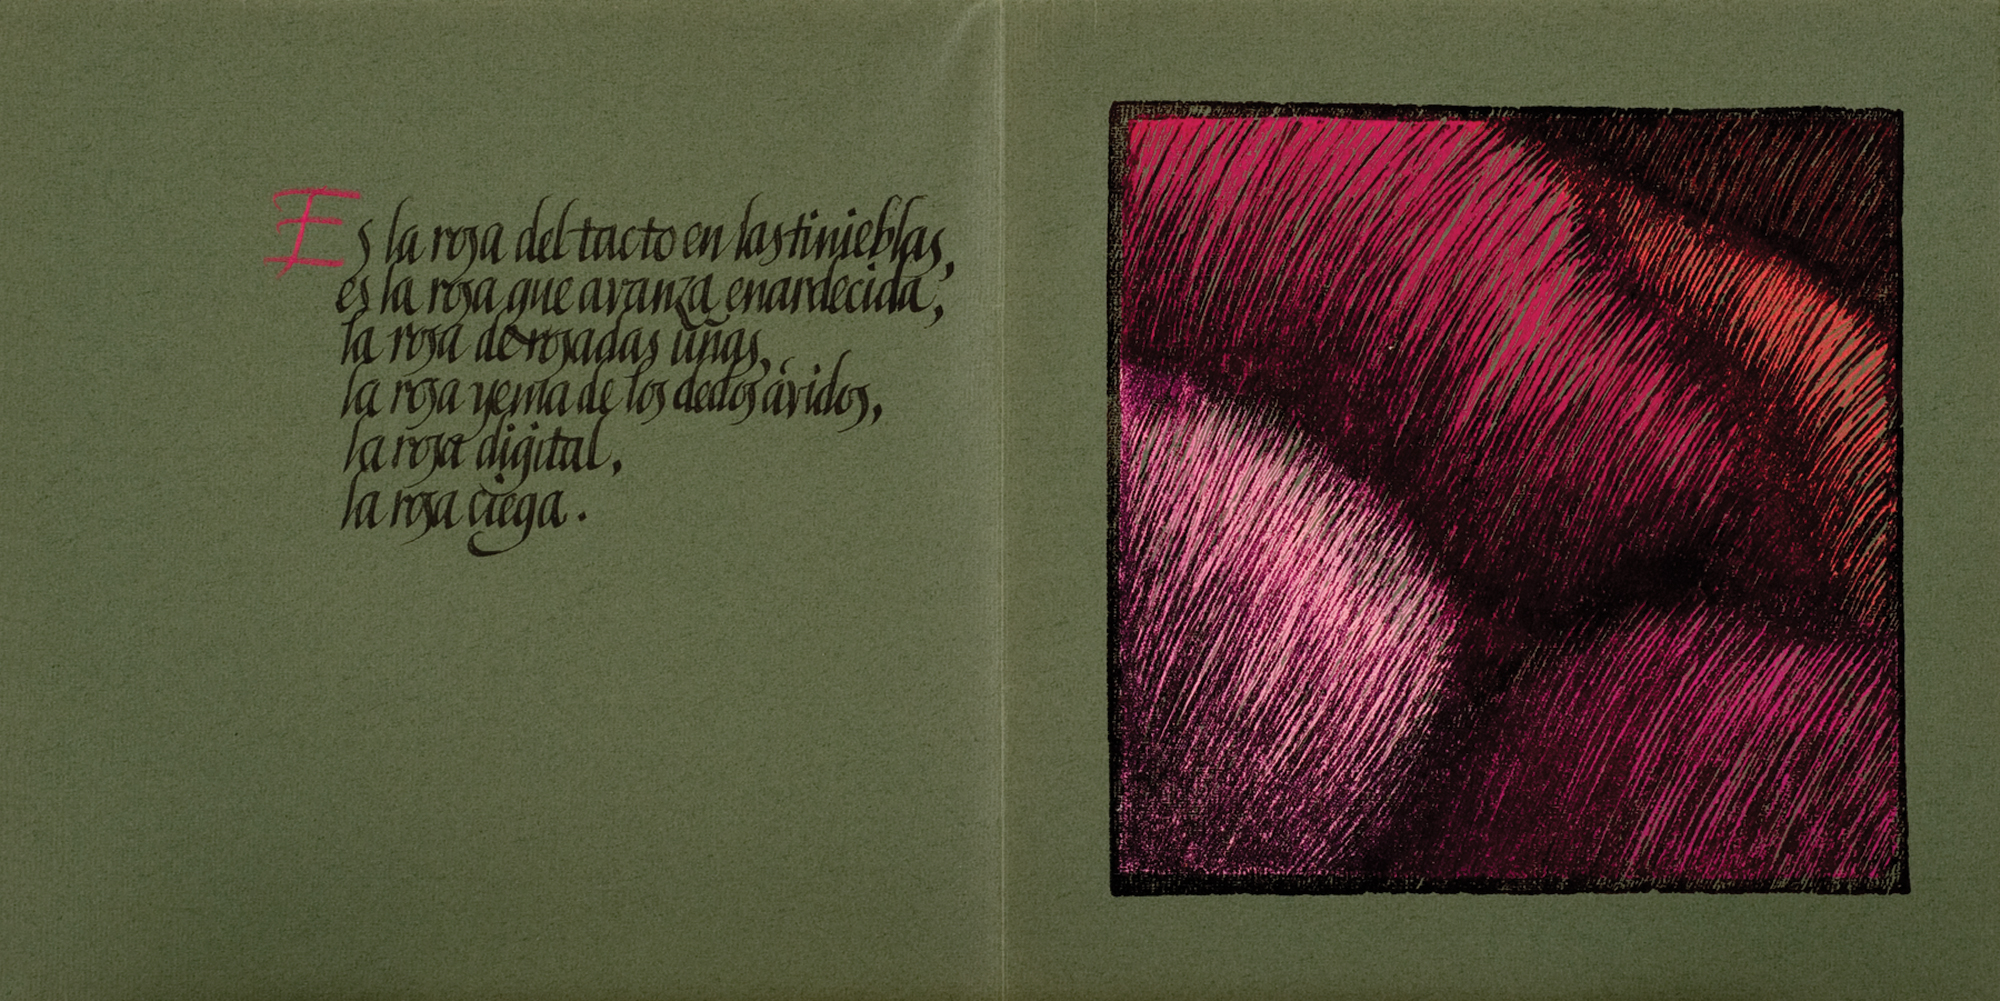 Es la rosa del tacto en las tinieblas,
es la rosa que avanza enardecida,
la rosa de rosadas uñas,
la rosa yema de los dedos ávidos,
la rosa digital,
la rosa ciega.